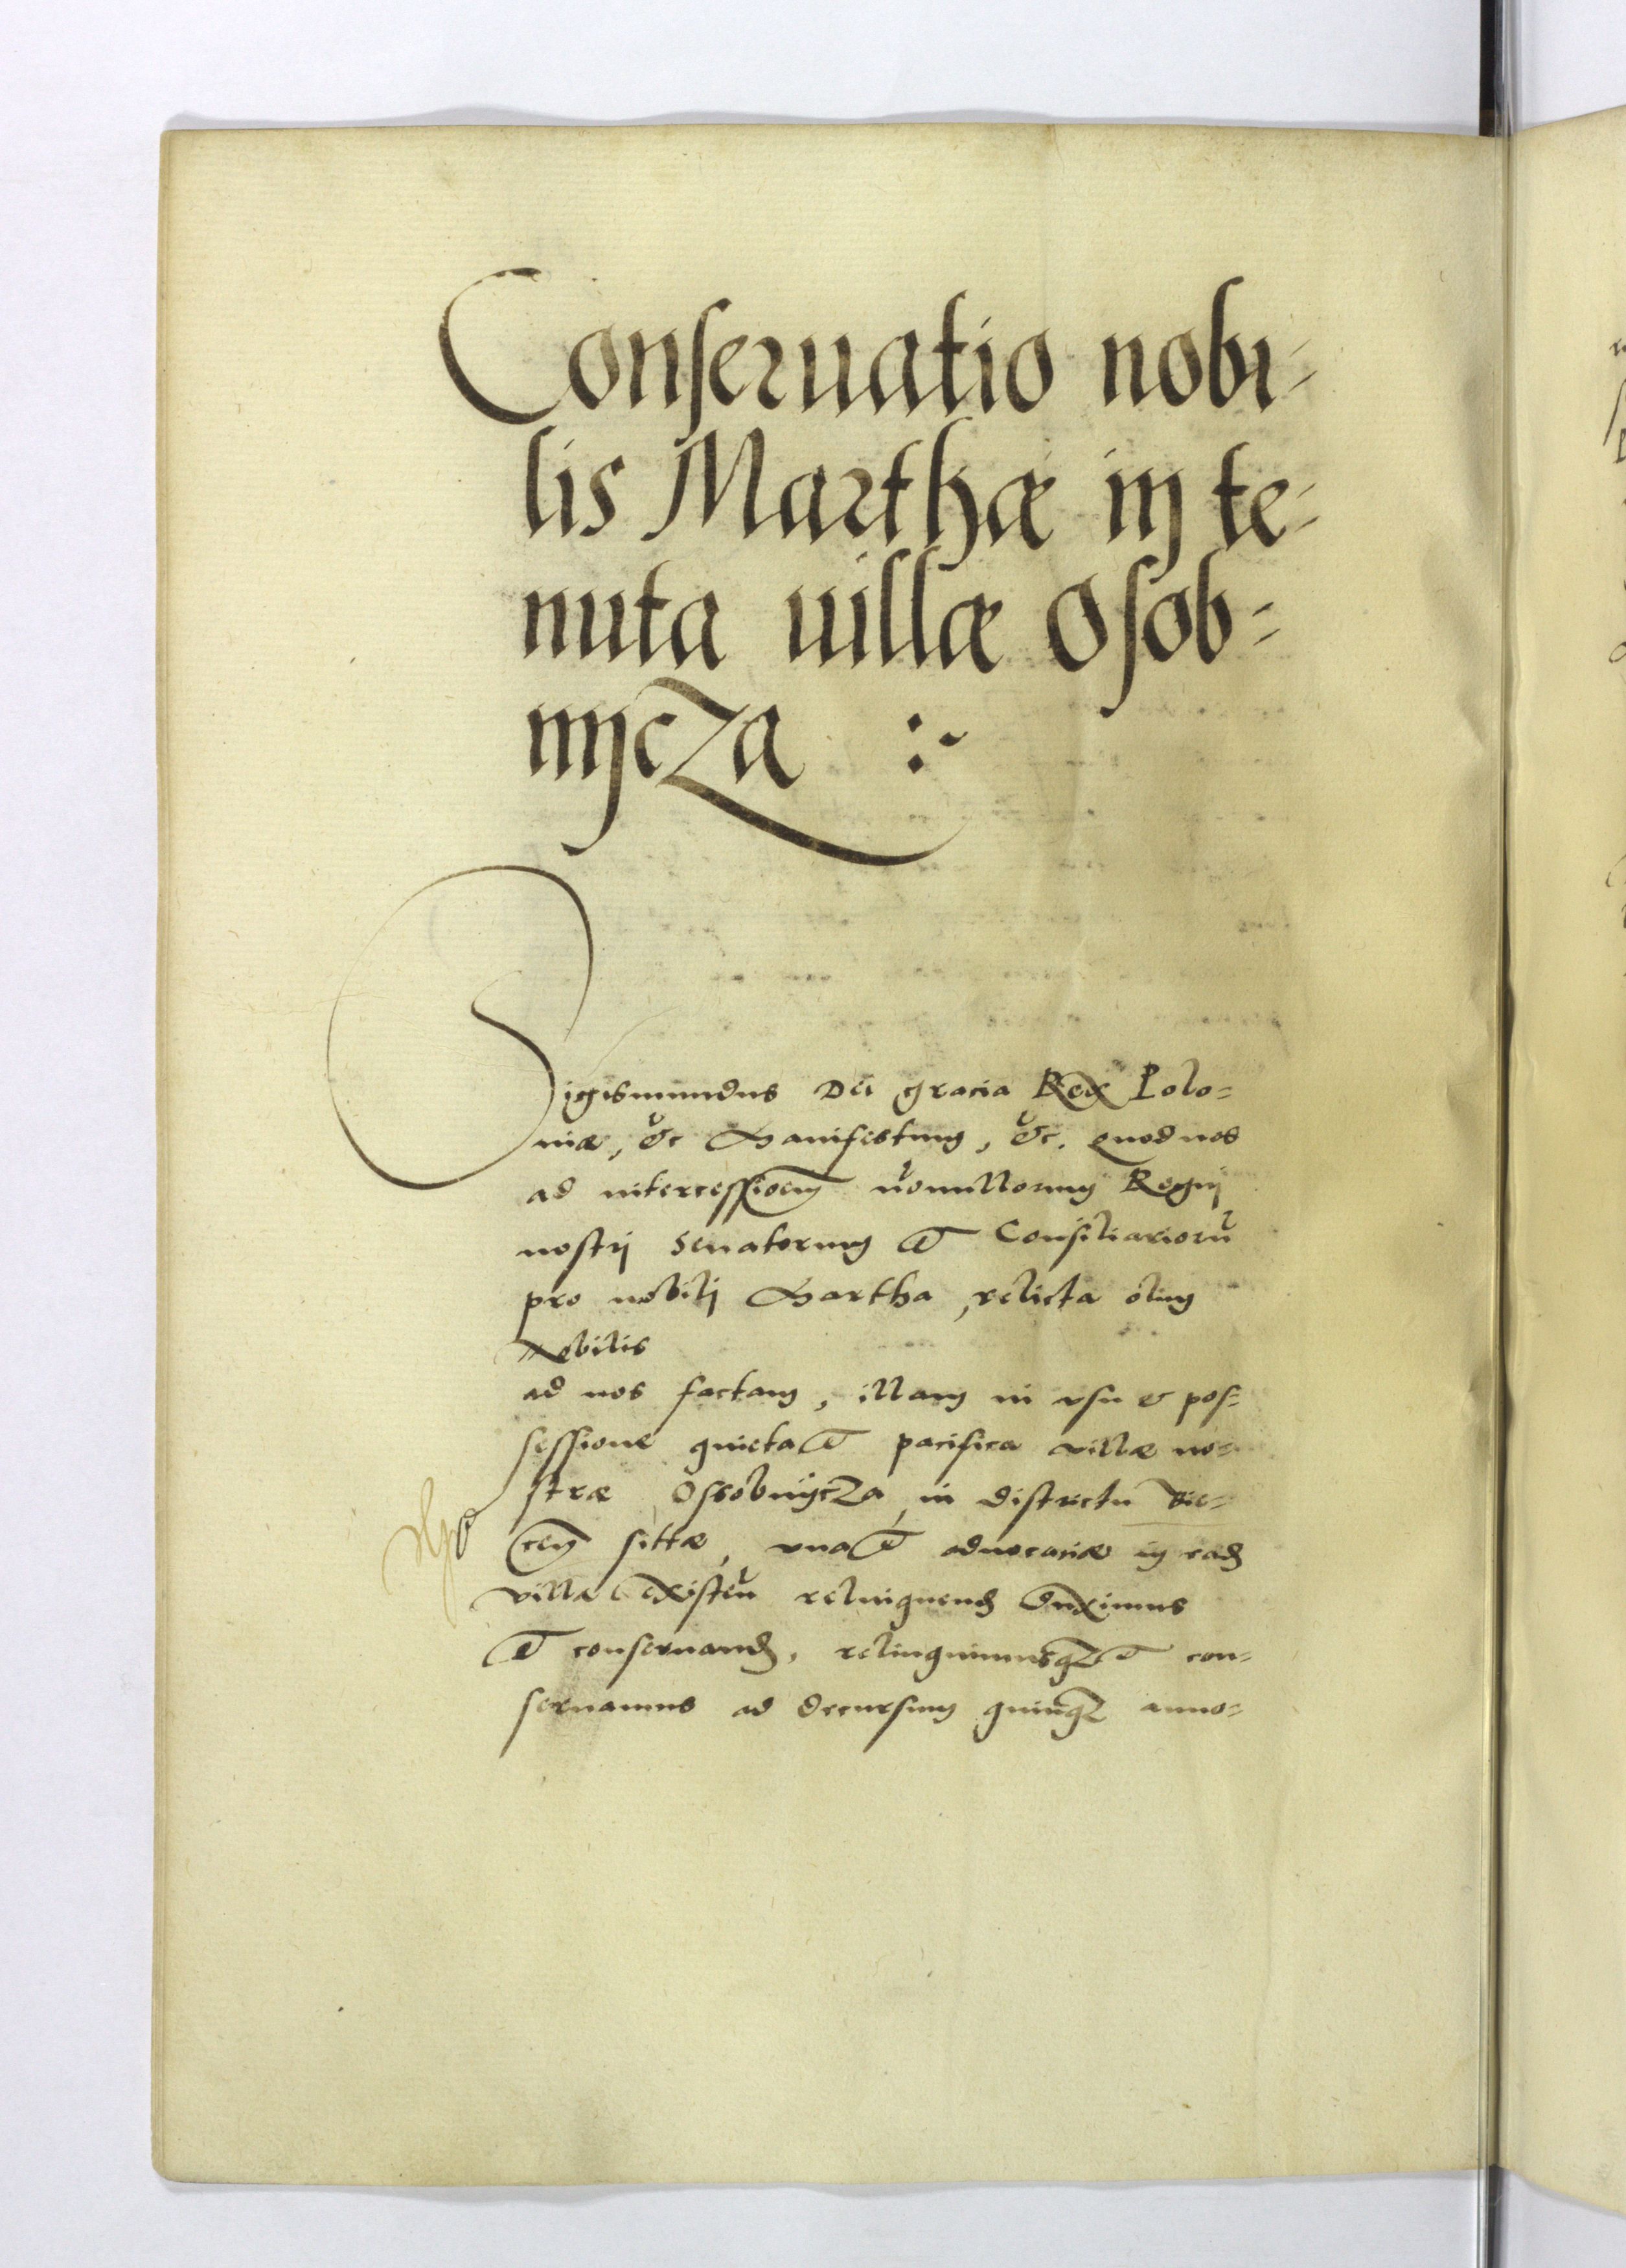 Conseruatio nobi-
lis Marthæ in te-
nuta uillæ Osob-
nijcza :~
Sigismundus Dei gracia Rex Polo=
niæ, &c Manifestum, &c. quod nos
ad intercessionem nonnullorum Regnj
nostrj Senatorum et Consiliariorū
pro nobilj Martha, relicta olim
Nobilis
ad nos factam, illam in vsu & pos=
sessione quieta et pacifica villæ no=
stræ Ossobnijcza, in districtu Bie=
cen sittæ, vna et aduocatiæ in ead
villa existen̄ relinquend duximus
et conseruand, relinquimusqꝫ et con=
seruamus ad decursum quinqꝫ anno=